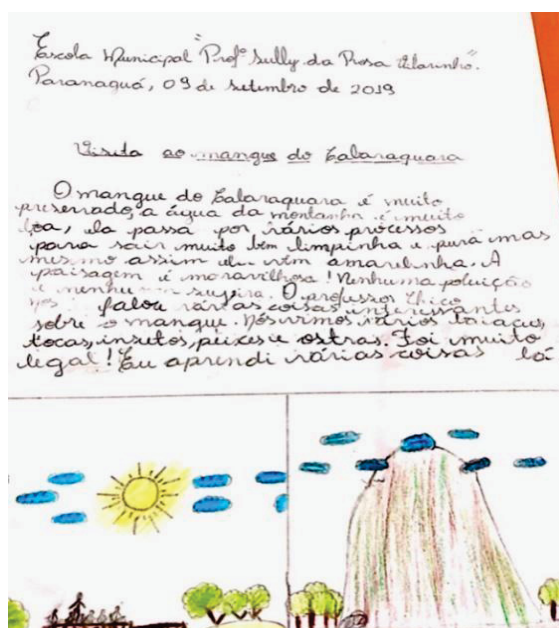 Escola Municipal "Profª Sully da Rosa Vilarinho".
Paranaguá, 09 de setembro de 2019
Visita ao mangue do Balaraquara
O mangue do Balaraquara é muito
preservado, a água da montanha é muito
boa, ela passa por vários processos
para sair muito bem limpinha e pura mas
mesmo assim ela vem amarelinha. A
paisagem é maravilhosa! Nenhuma poluição
e nenhuma sujeira. O professor Chico
nos falou várias coisas interessantes
sobre o mangue. Nós vimos vários baiacus,
tocas, insetos, peixes e ostras. Foi muito
legal! Eu aprendi várias coisas lá